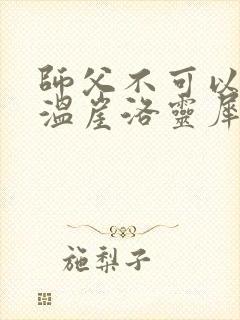 師父不可以
溫崖洛靈犀
施梨子